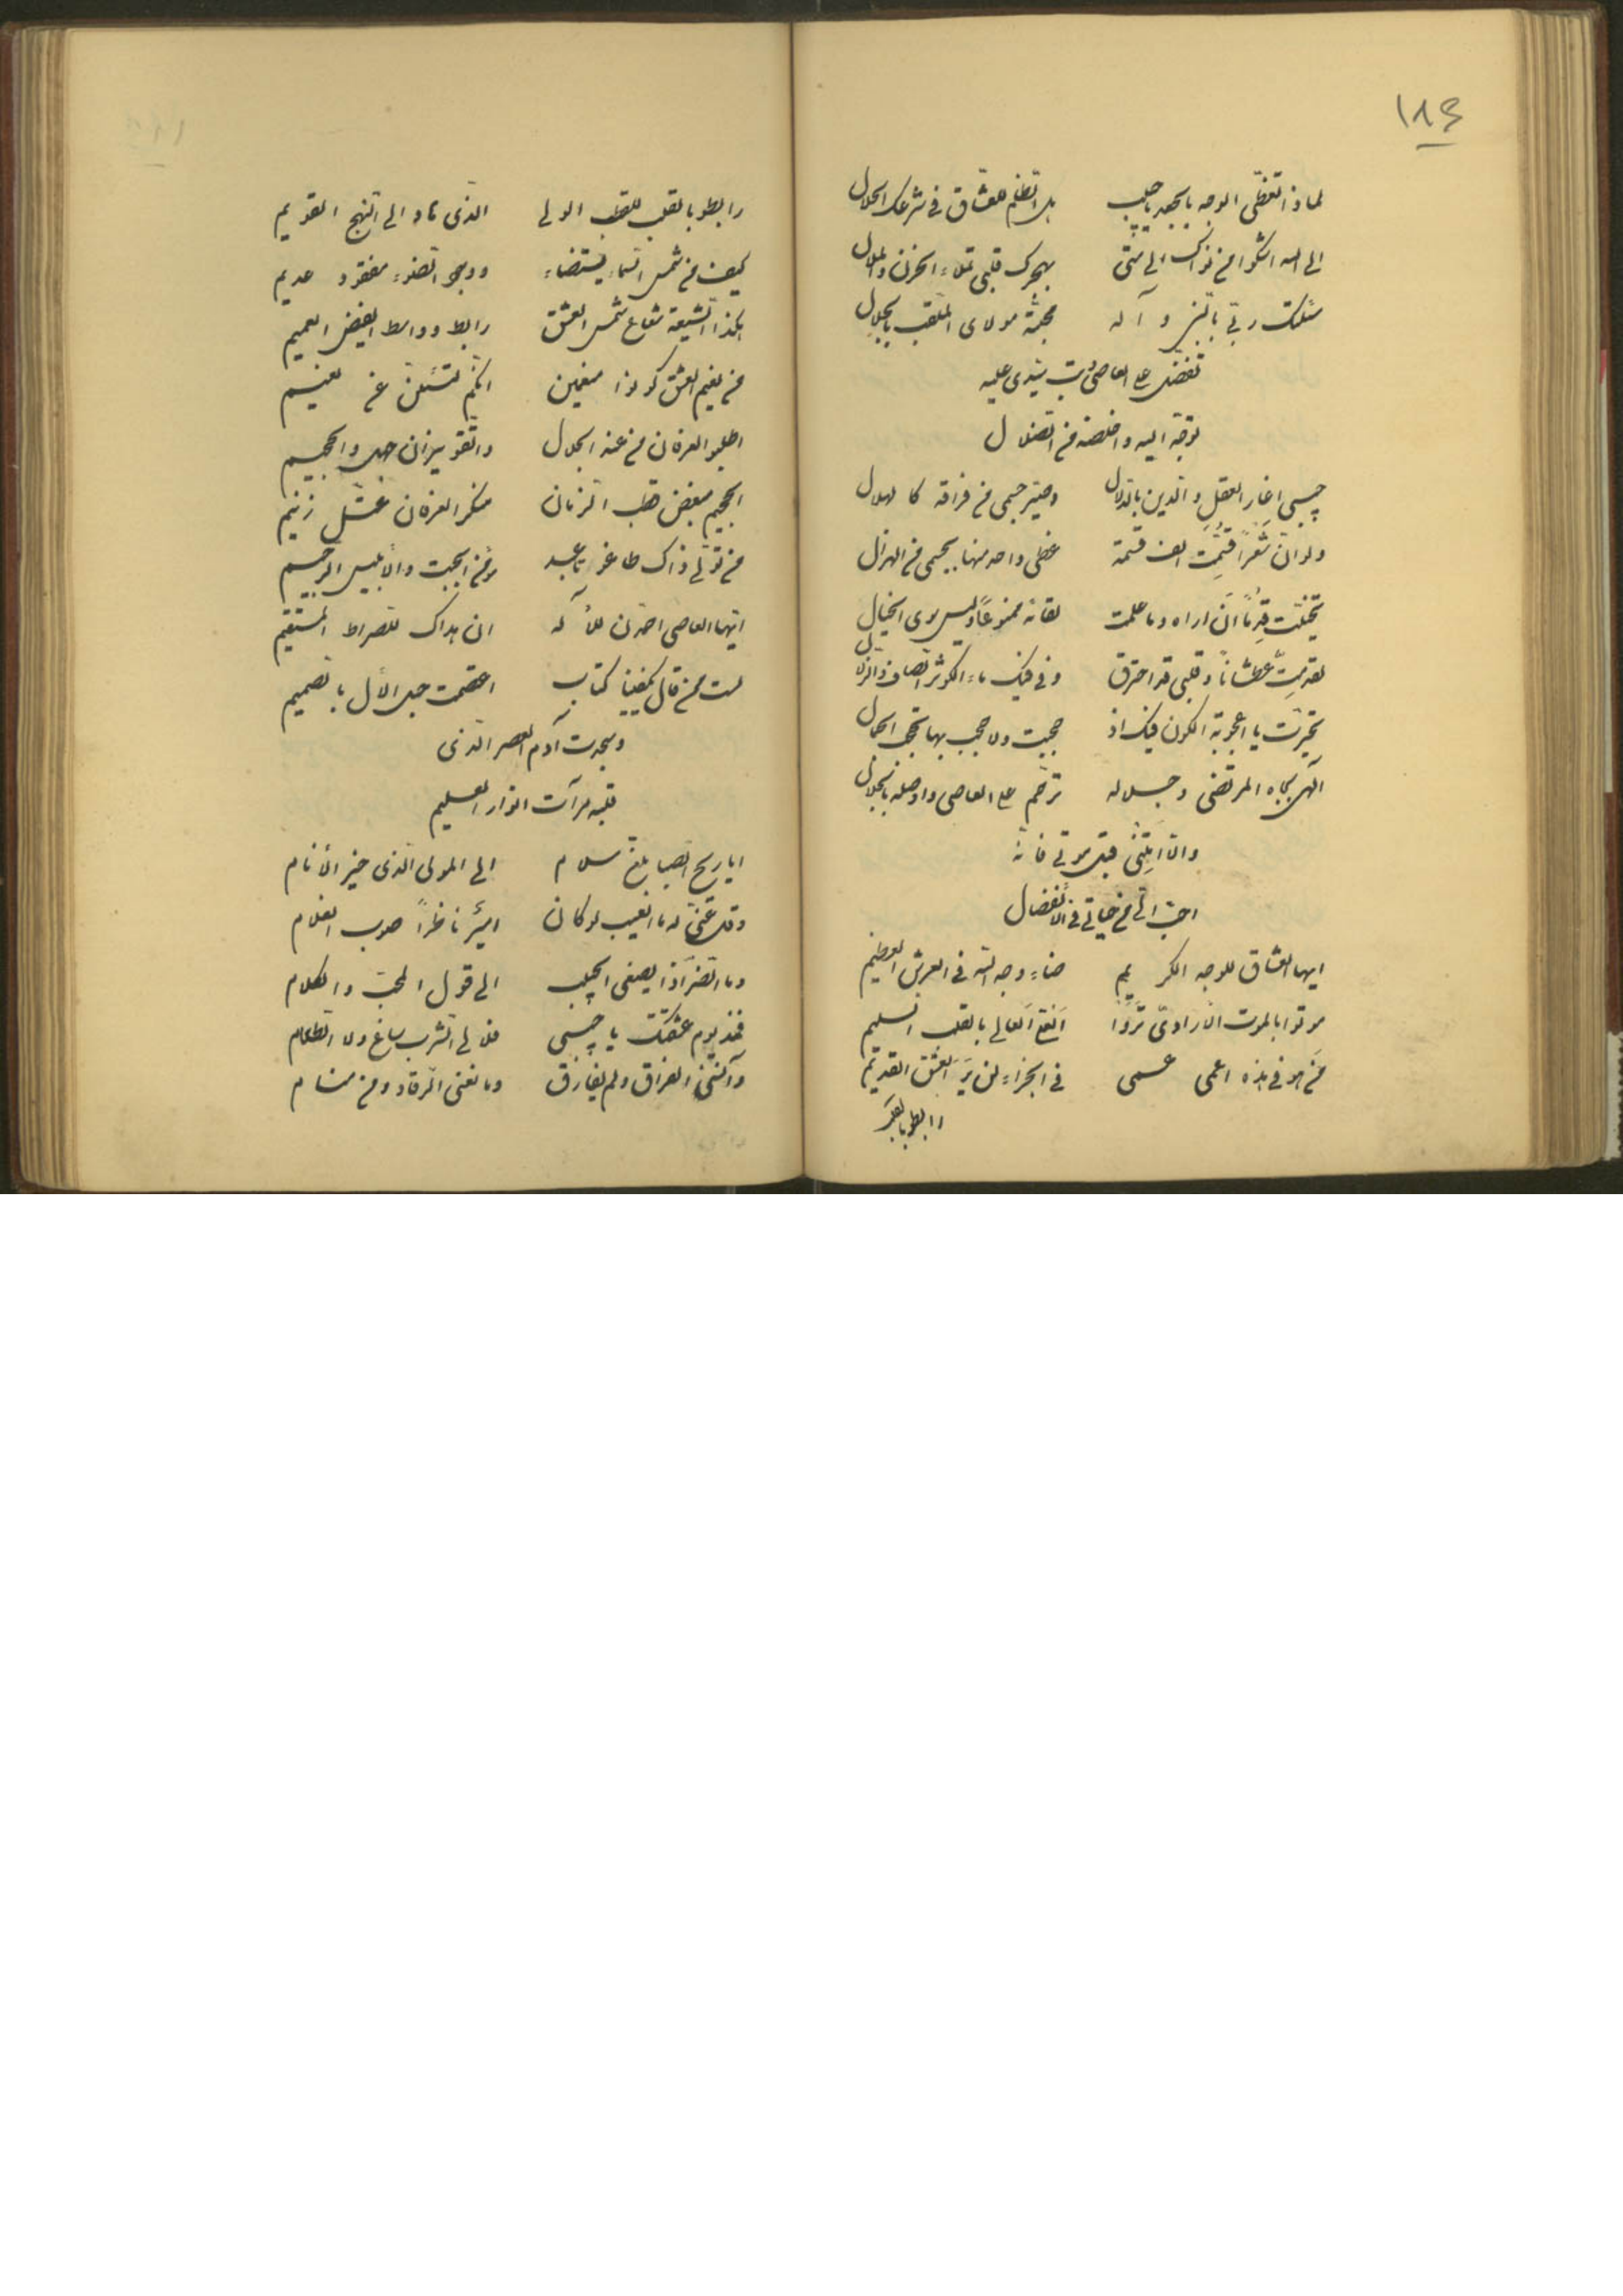 ١٨٤
لماذا تغطی الوجه بالجعد یا حبیب هل الظلم للعشاق فی شرعک الحلال
الی الله اشکوا من نواک الی متی بهجرک قلبی تملاء الحزن والملال
سئلت ربی بالنبی و آله محبة مولای الملقب بالجلال
تفضل علی العاصی وتب سیدی علیه
توجه الیه واخلصه من الضلال
حبیبی اغار العقل والدین بالدلال وصیر جسمی من فراقه کالهلال
ولو ان شعرا قسمت الف قسمة غطی واحد منها بجسمی من الهزال
تخیلت قدما ان اراه وما علمت لقائه ممنوعا ولیس سوی الخیال
لقد مت عطشانا وقلبی قد احترق وفی فیک ماء الکوثر الصاف والزلال
تحیرت یا اعجوبة الکون فیک اذ حجبت ولا حجب بها تحجب الجمال
الهی بجاه المرتضی وجلاله ترحم علی العاصی واوصله بالجلال
والا امتنی قبل موتی فانه
احب الی من حیاتی فی الانفصال
ایها العشاق للوجه الکریم ضاء وجه الله فی العرش العظیم
موتوا بالموت الارادی تروا العالی بالقلب السلیم
من هو فی هذه اعمی عسی فی الجزاء لن یر العشق القدیم
رابطوا بالقلب
رابطو بالقلب للقطب الولی الذی هاد الی النهج القویم
کیف من شمس السماء یستضاء ووجو الضوء مفقود عدیم
هکذا الشیعة شعاع شمس العشق رابط وواسط الفیض العمیم
من نعیم العشق کونوا منعمین انکم لتسئلن عن نعیم
اطلبو العرفان من عند الجلال واتقو نیران جهل والجحیم
الجحیم مبغض قطب الزمان منکر العرفان عتل زنیم
من تولی ذاک طاغوتا عبد مؤمن الجبت والابلیس الرجیم
ایها العاصی احمدن للأله ان هداک للصراط المستقیم
لست ممن قال یکفینا کتاب اعتصمت حبل الأل بالصمیم
وسجدت آدم العصر الذی
قلبه مرآت انوار العلیم
ایا ریح الصبا بلغ سلام الی المولی الذی خیر الأنام
وقل عنی له ما العیب لو کان امیر ناظرا صوب الغلام
وما الضر اذا یصغی الحبیب الی قول المحب والکلام
فمنذ یوم عشقتک یا حبیبی فلا لی الشرب ساغ ولا الطعام
وآلمنی الفراق ولم یفارق ومانعنی الرقاد ومن منام